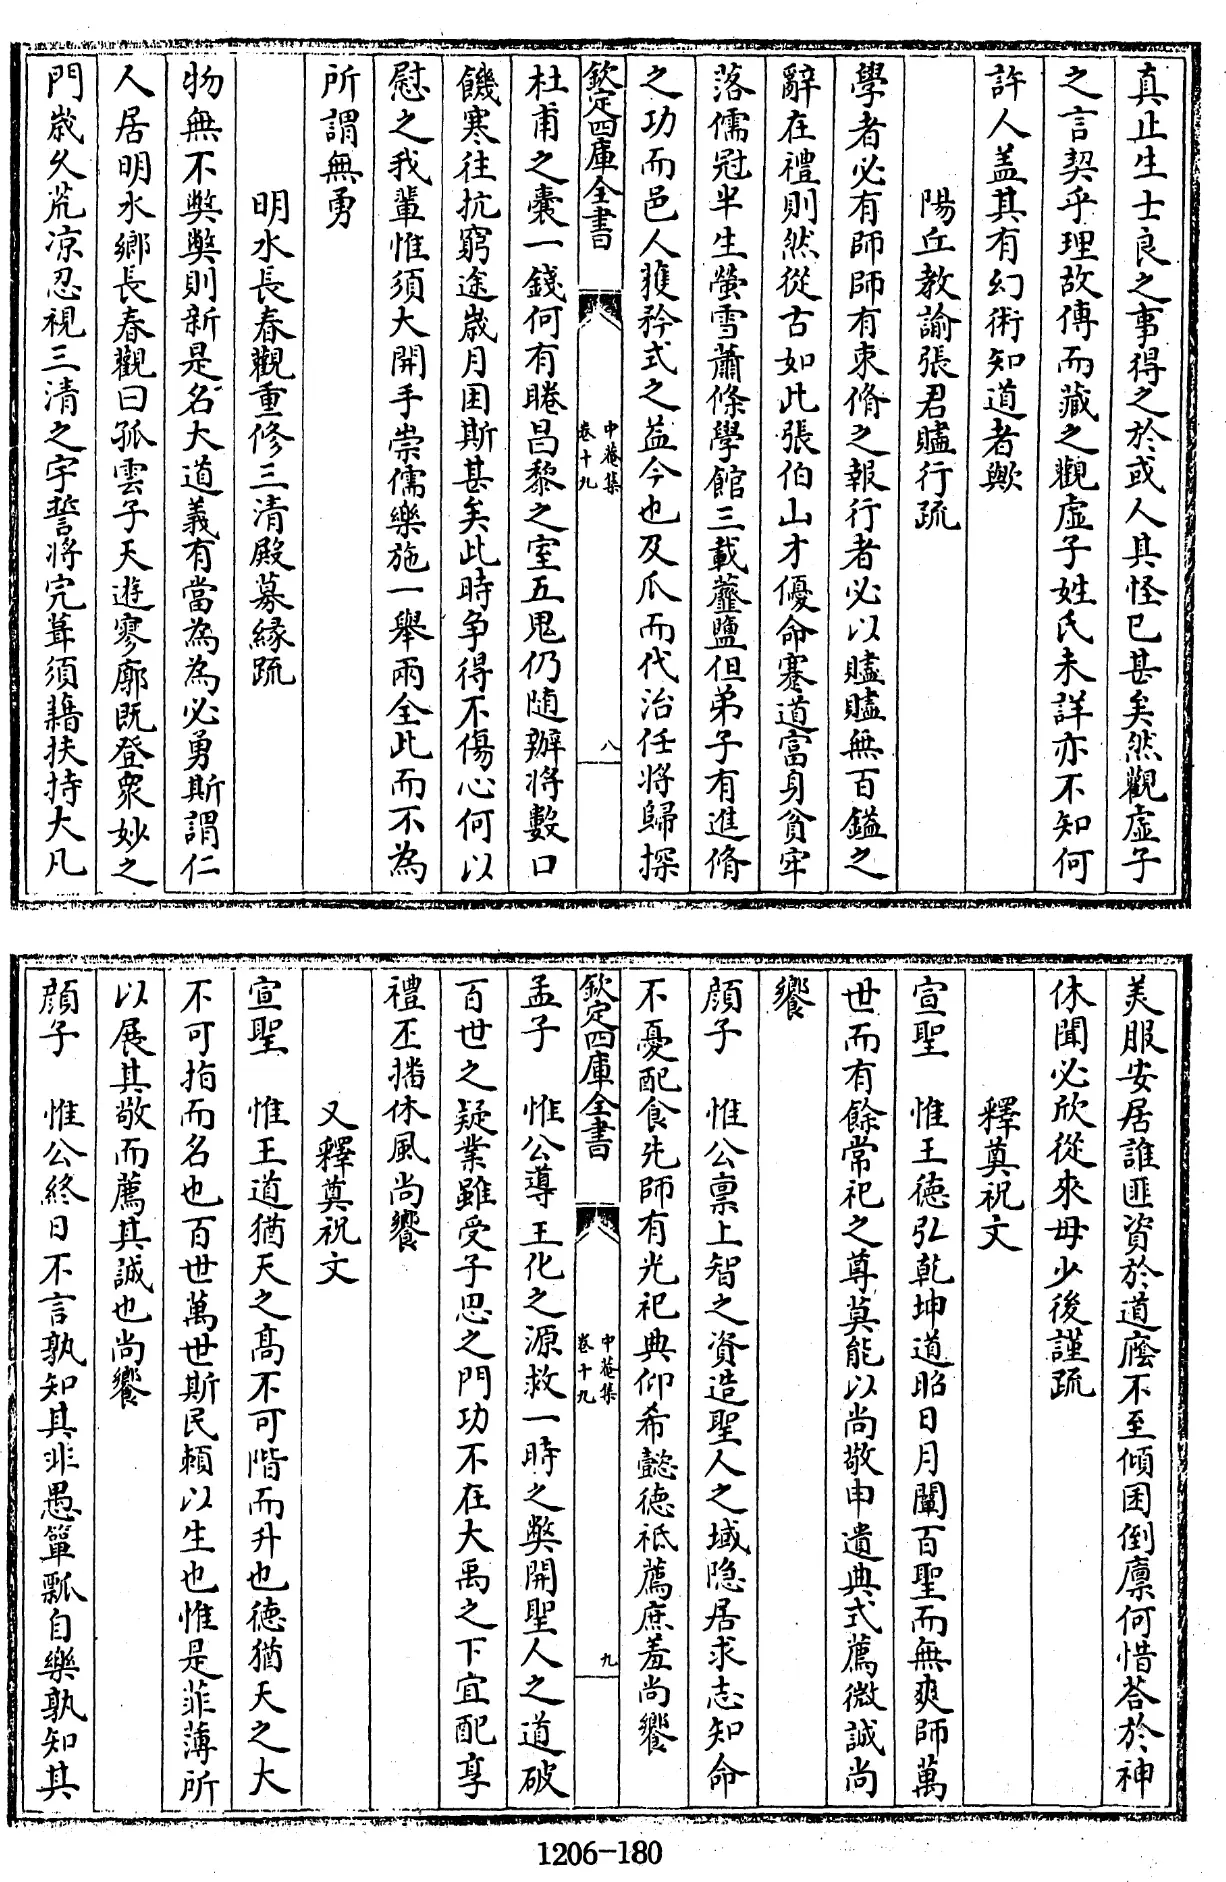 真止生士良之事得之於或人其怪已甚矣然觀虛子
之言契乎理故傳而藏之觀虛子姓氏未詳亦不知何
許人盖其有幻術知道者歟
陽丘教諭張君贐行疏
學者必有師師有束脩之報行者必以贐贐無百鎰之
辭在禮則然從古如此張伯山才優命蹇道富身貧牢
落儒冠半生螢雪蕭條學館三載虀鹽但弟子有進脩
之功而邑人獲矜式之益今也及爪而代治任將歸探
欽定四庫全書
中菴集
卷十九
八
杜甫之囊一錢何有睠昌黎之室五鬼仍随辦將數口
饑寒往抗窮途歲月困斯甚矣此時争得不傷心何以
慰之我輩惟須大開手崇儒樂施一舉兩全此而不為
所謂無勇
明水長春觀重修三清殿募縁疏
物無不獘獘則新是名大道義有當為為必勇斯謂仁
人居明水鄉長春觀曰孤雲子天遊寥廓既登衆妙之
門歲久荒凉忍視三清之宇誓將完葺須藉扶持大凡
美服安居誰匪資於道廕不至傾囷倒廪何惜荅於神
休聞必欣從來毋少後謹疏
釋奠祝文
宣聖　惟王德弘乾坤道昭日月闡百聖而無爽師萬
世而有餘常祀之尊莫能以尚敬申遺典式薦微誠尚
饗
顔子　惟公禀上智之資造聖人之域隐居求志知命
不憂配食先師有光祀典仰希懿德祗薦庶羞尚饗
欽定四庫全書
中菴集
卷十九
九
孟子　惟公導王化之源救一時之獘開聖人之道破
百世之疑業雖受子思之門功不在大禹之下宜配享
禮丕播休風尚饗
又釋奠祝文
宣聖　惟王道猶天之髙不可階而升也德猶天之大
不可指而名也百世萬世斯民頼以生也惟是菲薄所
以展其敬而薦其誠也尚饗
顔子　惟公終日不言孰知其非愚簞瓢自樂孰知其
1206-180